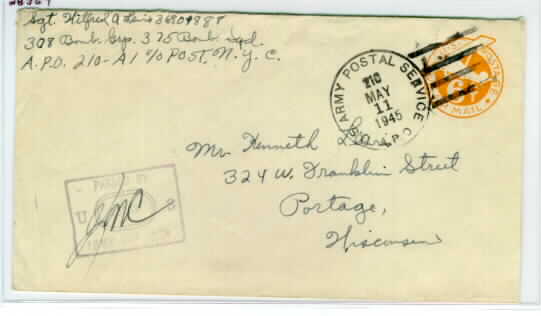 Sgt. Wilfred A
308 Bomb. Grp. 375 Bomb. Sqd.
A.P.O. 210-A1 c/o POST. N.Y.C.
U.S. ARMY POSTAL SERVICE
210
MAY
11
1945
A.P.O.
POSTAGE
6¢
AIR MAIL
Mr. Kenneth
324 W. Franklin Street
Portage,
Wisconsin
PASSED BY
U S